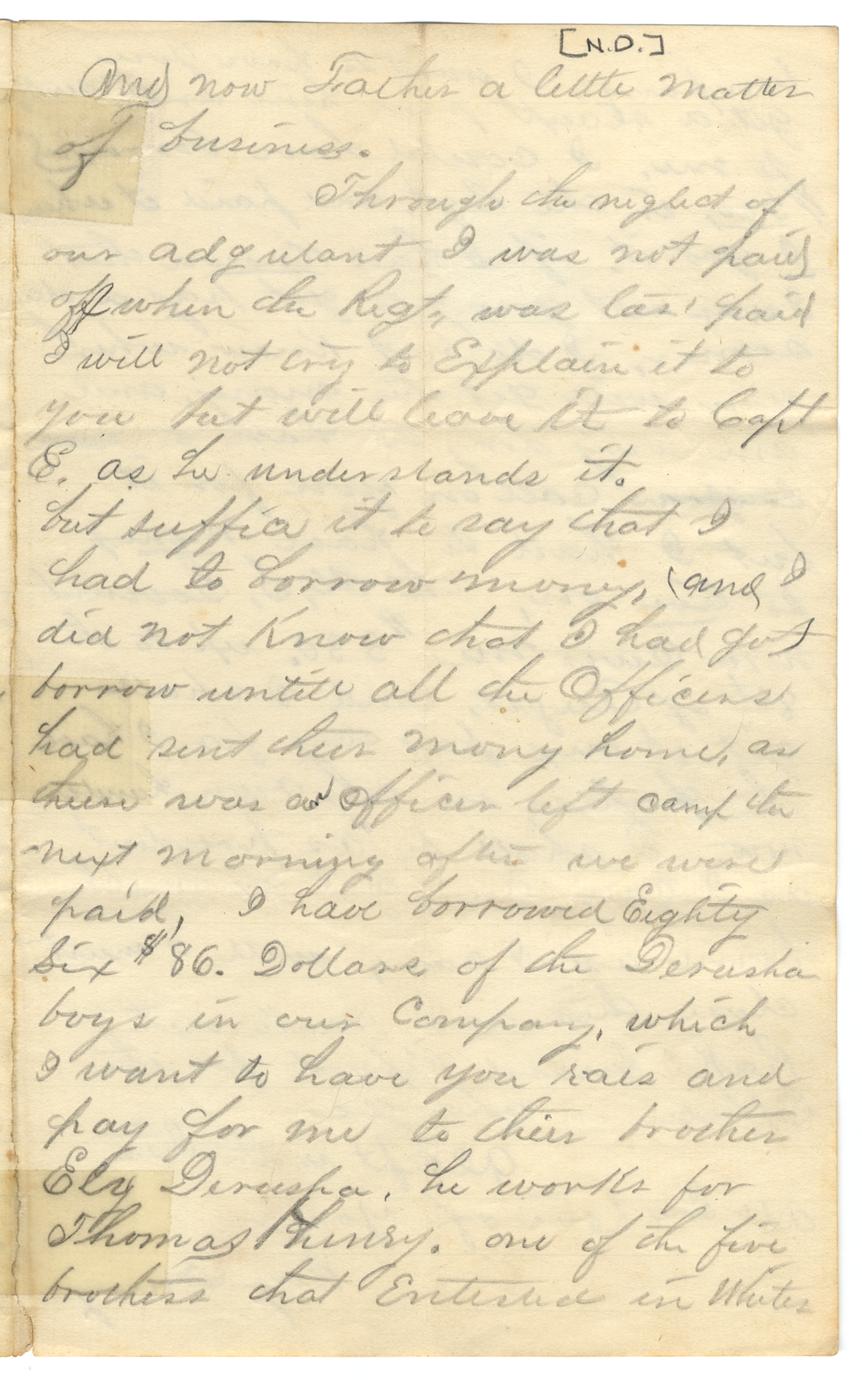 [N.D.]
And now Father a little matter
of business.
Through the neglect of
our adgutant I was not paid
off when the Regt, was las' paid
I will not try to Explain it to
you but will leave It to Capt
E. as he understands it.
but suffia it to say that I
had to borrow mony, (and I
did not Know that I had got
borrow untill all the Officers
had sent their mony home, as
there was an Officer left camp the
next morning after we were
paid, I have borrowed Eighty
Six $86. Dollars of the Derusha
boys in our Company, which
I want to have you rais and
pay for me to their brother
Ely Derusha, he works for
Thomas Henry. one of the five
brothers that Enlisted in Whites